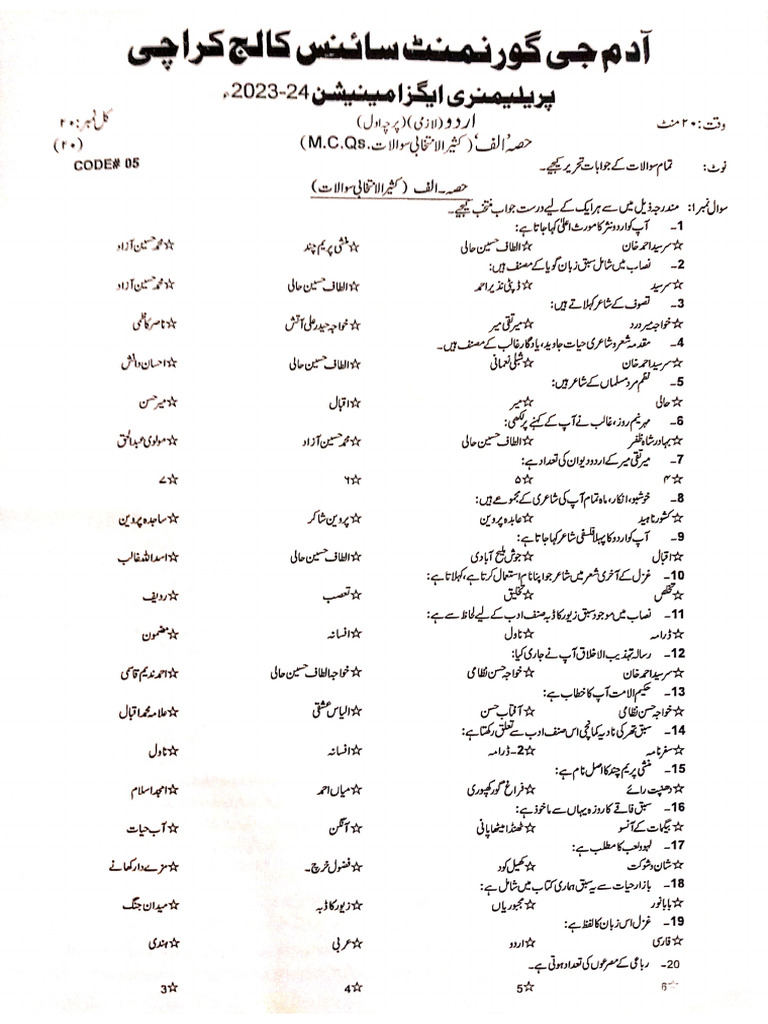 آدم جی گورنمنٹ سائنس کالج کراچی
پریلیمنری ایگزامینیشن 24-2023ء
وقت: ۲۰ منٹ اردو (لازمی) (پرچہ اول) کل نمبر: ۲۰
حصہ 'الف' (کثیر الانتخابی سوالات .M.C.Qs) (۲۰)
نوٹ: تمام سوالات کے جوابات تحریر کیجیے۔ CODE# 05
حصہ۔ الف (کثیر الانتخابی سوالات)
سوال نمبر۱: مندرجہ ذیل میں سے ہر ایک کے لیے درست جواب منتخب کیجیے۔
1- آپ کو اردو نثر کا مورث اعلیٰ کہا جاتا ہے:
☆ سرسید احمد خان ☆ الطاف حسین حالی ☆ منشی پریم چند ☆ محمد حسین آزاد
2- نصاب میں شامل سبق زبان گویا کے مصنف ہیں:
☆ سرسید ☆ ڈپٹی نذیر احمد ☆ الطاف حسین حالی ☆ محمد حسین آزاد
3- تصوف کے شاعر کہلاتے ہیں:
☆ خواجہ میر درد ☆ میر تقی میر ☆ خواجہ حیدر علی آتش ☆ ناصر کاظمی
4- مقدمہ شعر و شاعری حیات جاوید، یادگار غالب کے مصنف ہیں۔
☆ سرسید احمد خان ☆ شبلی نعمانی ☆ الطاف حسین حالی ☆ احسان دانش
5- نظم مرد مسلماں کے شاعر ہیں:
☆ حالی ☆ میر ☆ اقبال ☆ میر حسن
6- مہر نیم روز، غالب نے آپ کے کہنے پر لکھی:
☆ بہادر شاہ ظفر ☆ الطاف حسین حالی ☆ محمد حسین آزاد ☆ مولوی عبدالحق
7- میر تقی میر کے اردو دیوان کی تعداد ہے:
☆ ۴ ☆ ۵ ☆ ۶ ☆ ۷
8- خوشبو، انکار، ماہ تمام آپ کی شاعری کے مجموعے ہیں:
☆ کشور ناہید ☆ عابدہ پروین ☆ پروین شاکر ☆ ساجدہ پروین
9- آپ کو اردو کا پہلا فلسفی شاعر کہا جاتا ہے:
☆ اقبال ☆ جوش ملیح آبادی ☆ الطاف حسین حالی ☆ اسد اللہ غالب
10- غزل کے آخری شعر میں شاعر جو اپنا نام استعمال کرتا ہے، کہلاتا ہے:
☆ تخلص ☆ تخلیق ☆ تعصب ☆ ردیف
11- نصاب میں موجود سبق زیور کا ڈبہ صنف ادب کے لحاظ سے ہے:
☆ ڈرامہ ☆ ناول ☆ افسانہ ☆ مضمون
12- رسالہ تہذیب الاخلاق آپ نے جاری کیا:
☆ سرسید احمد خان ☆ خواجہ حسن نظامی ☆ خواجہ الطاف حسین حالی ☆ احمد ندیم قاسمی
13- حکیم الامت آپ کا خطاب ہے:
☆ خواجہ حسن نظامی ☆ آفتاب حسن ☆ الیاس عشقی ☆ علامہ محمد اقبال
14- سبق تھر کی نادیہ کمانچی اس صنف ادب سے تعلق رکھتا ہے:
☆ سفرنامہ ☆ 2- ڈرامہ ☆ افسانہ ☆ ناول
15- منشی پریم چند کا اصل نام ہے:
☆ دھنپت رائے ☆ فراغ گورکھپوری ☆ میاں احمد ☆ امجد اسلام
16- سبق فاقے کا روزہ یہاں سے ماخوذ ہے:
☆ بیگمات کے آنسو ☆ ٹھنڈا میٹھا پانی ☆ آنگن ☆ آب حیات
17- لہو ولعب کا مطلب ہے:
☆ شان و شوکت ☆ کھیل کود ☆ فضول خرچ۔ ☆ مزے دار کھانے
18- بازار حیات سے یہ سبق ہماری کتاب میں شامل ہے:
☆ بابا نور ☆ مجبوریاں ☆ زیور کا ڈبہ ☆ میدان جنگ
19- غزل اس زبان کا لفظ ہے:
☆ فارسی ☆ اردو ☆ عربی ☆ ہندی
20- رباعی کے مصرعوں کی تعداد ہوتی ہے۔
☆ 6 ☆ 5 ☆ 4 ☆ 3